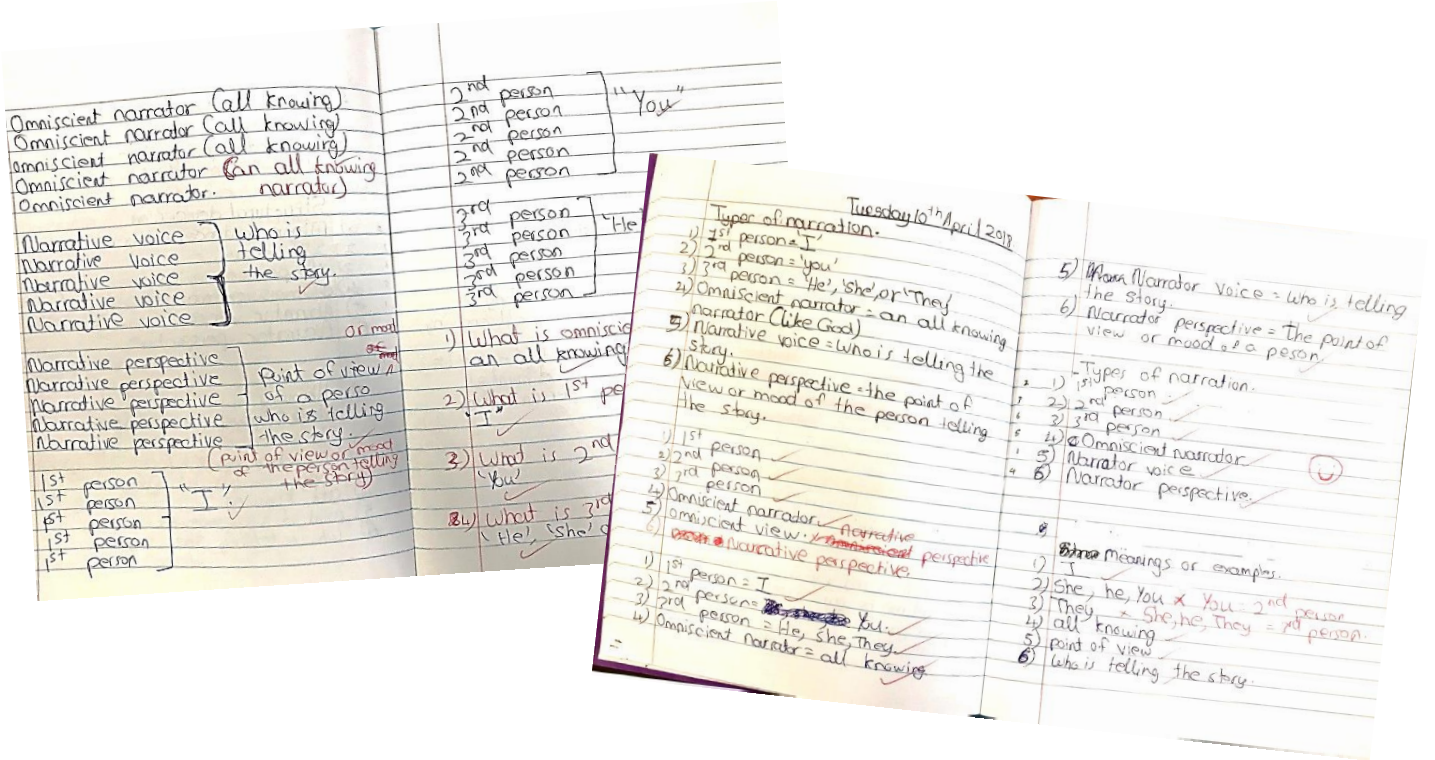 Omniscient narrator (all knowing)
Omniscient narrator (all knowing)
omniscient narrator (all knowing)
Omniscient narrator (an all knowing
Omniscient narrator. narrator)
Narrative voice
Narrative voice
Narrative voice
Narrative voice
Narrative voice
who is
telling
the story.
or mood
Narrative perspective
Narrative perspective
Narrative perspective
Narrative perspective
Narrative perspective
point of view
of a perso
who is telling
the story.
(point of view or mood
of the person telling
the story)
1st person
1st person
1st person
1st person
1st person
"I".
2nd person
2nd person
2nd person
2nd person
2nd person
"You"
3rd person
3rd person
3rd person
3rd person
3rd person
"He
1) What is omnisci
an all knowing
2) What is 1st pe
"I"
3) What is 2nd
'You'
4) What is 3rd
'He', 'She'
Tuesday 10th April 2018
Types of narration.
1) 1st person = 'I'
2) 2nd person = 'you'
3) 3rd person = 'He', 'She', or 'They
4) Omniscient narrator = an all knowing
narrator (like God)
5) Narrative voice = who is telling the
story.
6) Narrative perspective = the point of
view or mood of the person telling
the story.
1) 1st person
2) 2nd person
3) 3rd person
4) Omniscient narrator
5) omniscient view. x narrative perspective
6) Narrative perspective.
1) 1st person = I
2) 2nd person = You.
3) 3rd person = He, She, They
4) Omniscient narrator = all knowing
5) Narrator voice = who is telling
the story.
6) Narrator perspective = the point of
view or mood of a peson
-Types of narration.
1) 1st person
2) 2nd person
3) 3rd person
4) Omniscient narrator
5) Narrator voice
6) Narrator perspective.
meanings or examples.
1) I
2) She, he, You x You = 2nd person
3) They x She, he, They = 3rd person.
4) all knowing
5) point of view
6) who is telling the story.